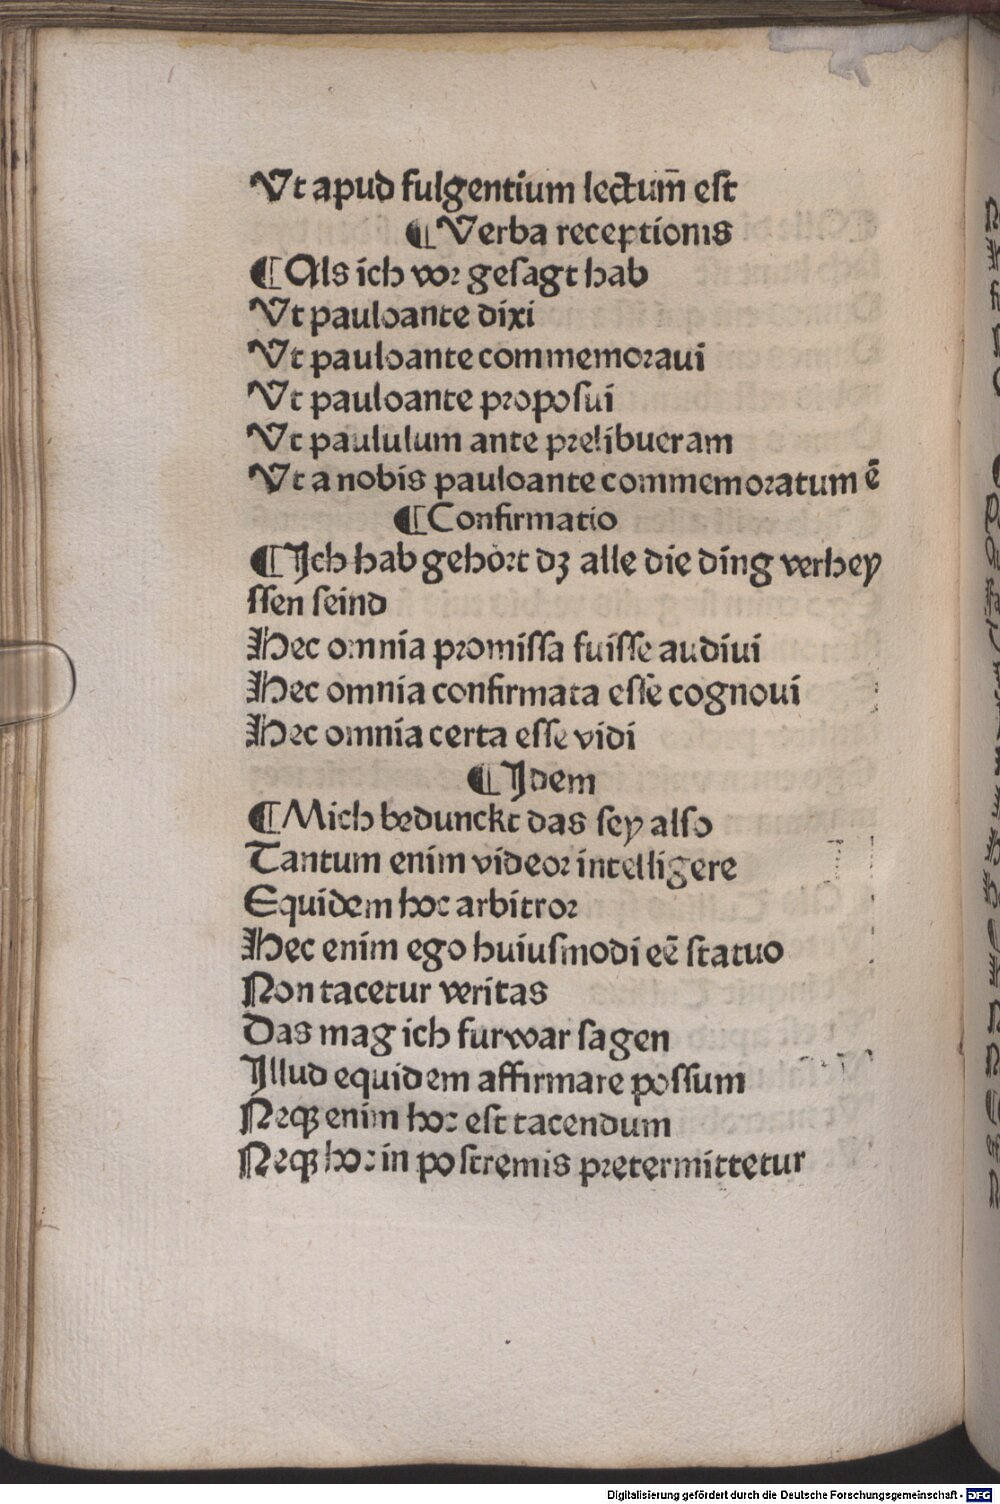 Vt apud fulgentium lectum̄ eſt
¶Verba receptionis
¶Als ich vor geſagt hab
Vt pauloante dixi
Vt pauloante commemoraui
Vt pauloante propoſui
Vt paululum ante prelibueram
Vt a nobis pauloante commemoratum ē
¶Confirmatio
¶Ich hab gehört dꝫ alle die ding verhey
ſſen ſeind
Hec omnia promiſſa fuiſſe audiui
Hec omnia confirmata eſſe cognoui
Hec omnia certa eſſe vidi
¶Idem
¶Mich bedunckt das ſey alſo
Tantum enim videor intelligere
Equidem hoc arbitror
Hec enim ego huiuſmodi eē ſtatuo
Non tacetur veritas
Das mag ich furwar ſagen
Illud equidem affirmare poſſum
Neqꝫ enim hoc eſt tacendum
Neqꝫ hoc in poſtremis pretermittetur
Digitalisierung gefördert durch die Deutsche Forschungsgemeinschaft - DFG